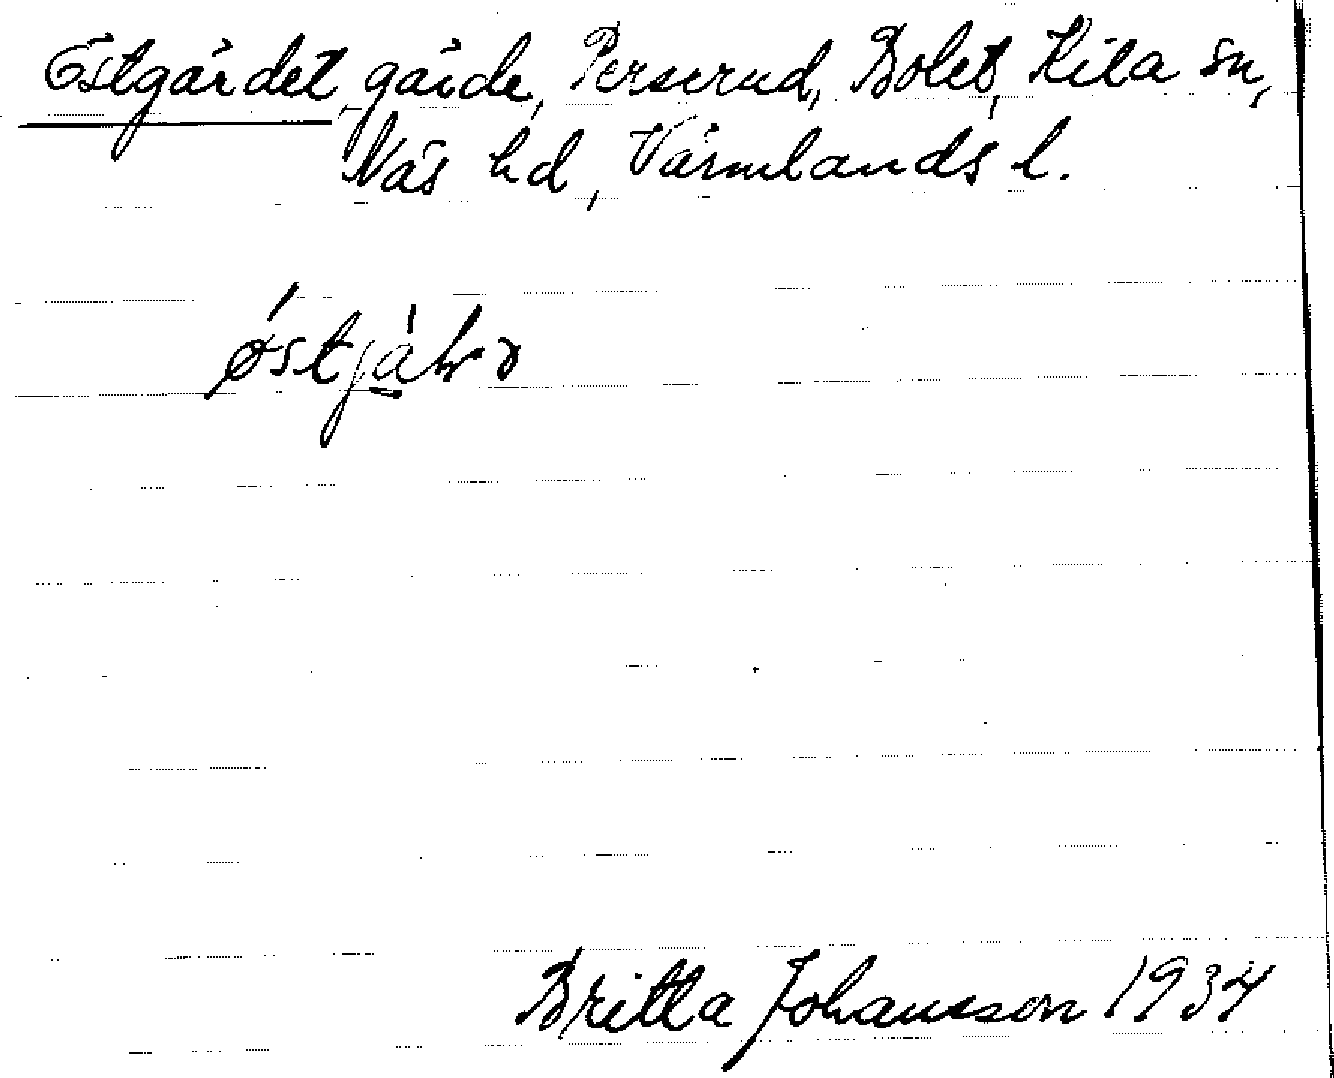 Östgärdet, gärde, Perserud, Bolet, Kila sn,
Näs hd, Värmlands l.
Britta Johansson 1934